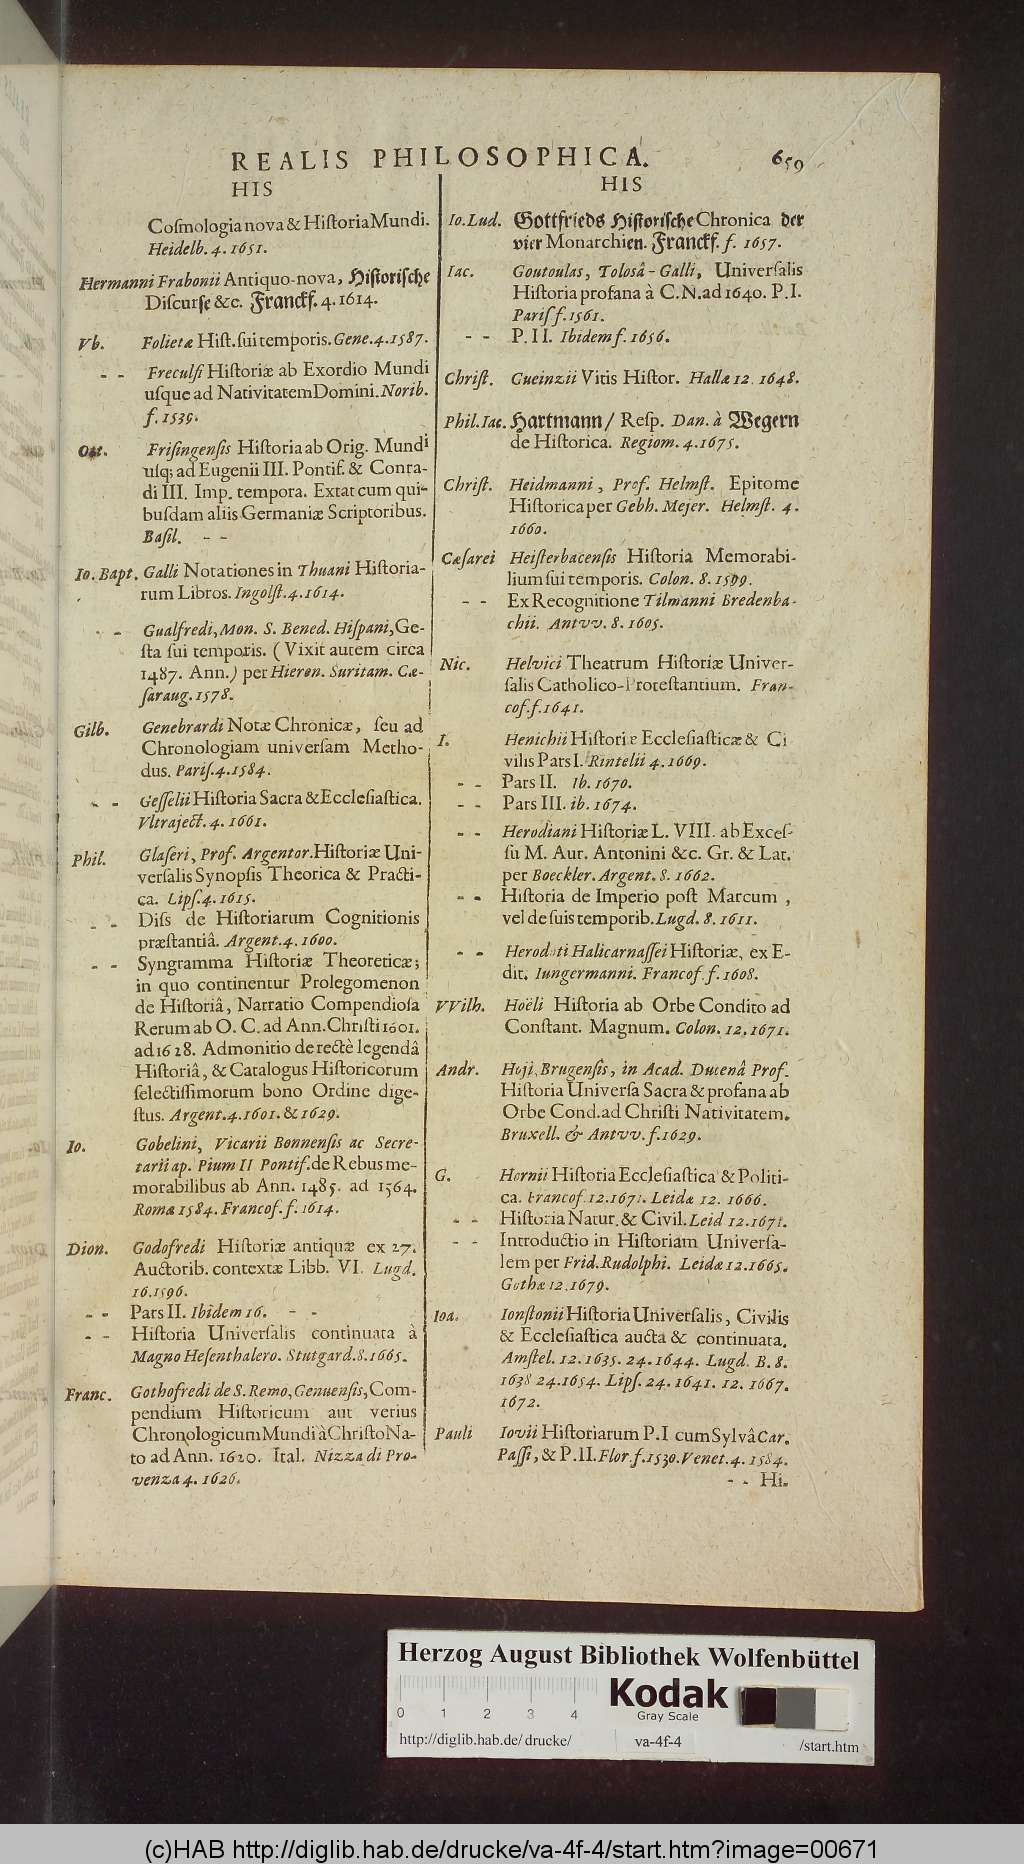 REALIS PHILOSOPHICA. 659
HIS
Coſmologia nova & Hiſtoria Mundi.
Heidelb. 4. 1651.
Hermanni Frabonii Antiquo-nova, Hiſtoriſche
Diſcurſe &c. Franckf. 4. 1614.
Vb. Folietæ Hiſt. ſui temporis. Gene. 4. 1587.
- - Freculfi Hiſtoriæ ab Exordio Mundi
uſque ad Nativitatem Domini. Norib.
f. 1539.
Ott. Friſingenſis Hiſtoria ab Orig. Mundi
uſq; ad Eugenii III. Pontif. & Conra-
di III. Imp. tempora. Extat cum qui-
buſdam aliis Germaniæ Scriptoribus.
Baſil. - -
Io. Bapt. Galli Notationes in Thuani Hiſtoria-
rum Libros. Ingolſt. 4. 1614.
- - Gualfredi, Mon. S. Bened. Hiſpani, Ge-
ſta ſui temporis. (Vixit autem circa
1487. Ann.) per Hieron. Suritam. Cæ-
ſaraug. 1578.
Gilb. Genebrardi Notæ Chronicæ, ſeu ad
Chronologiam univerſam Metho-
dus. Pariſ. 4. 1584.
- - Geſſelii Hiſtoria Sacra & Eccleſiaſtica.
Vltraject. 4. 1661.
Phil. Glaſeri, Prof. Argentor. Hiſtoriæ Uni-
verſalis Synopſis Theorica & Practi-
ca. Lipſ. 4. 1615.
- - Diſs de Hiſtoriarum Cognitionis
præſtantiâ. Argent. 4. 1600.
- - Syngramma Hiſtoriæ Theoreticæ;
in quo continentur Prolegomenon
de Hiſtoriâ, Narratio Compendioſa
Rerum ab O. C. ad Ann. Chriſti 1601.
ad 1628. Admonitio de rectè legendâ
Hiſtoriâ, & Catalogus Hiſtoricorum
ſelectiſſimorum bono Ordine dige-
ſtus. Argent. 4. 1601. & 1629.
Io. Gobelini, Vicarii Bonnenſis ac Secre-
tarii ap. Pium II Pontif. de Rebus me-
morabilibus ab Ann. 1485. ad 1564.
Romæ 1584. Francof. f. 1614.
Dion. Godofredi Hiſtoriæ antiquæ ex 27.
Auctorib. contextæ Libb. VI. Lugd.
16. 1596.
- - Pars II. Ibidem 16. - -
- - Hiſtoria Univerſalis continuata à
Magno Heſenthalero. Stutgard. 8. 1665.
Franc. Gothofredi de S. Remo, Genuenſis, Com-
pendium Hiſtoricum aut verius
Chronologicum Mundi à Chriſto Na-
to ad Ann. 1620. Ital. Nizza di Pro-
venza 4. 1626.
HIS
Io. Lud. Gottfrieds Hiſtoriſche Chronica der
vier Monarchien. Franckf. f. 1657.
Iac. Goutoulas, Tolosâ-Galli, Univerſalis
Hiſtoria profana à C. N. ad 1640. P. I.
Pariſ f. 1561.
- - P. II. Ibidem f. 1656.
Chriſt. Gueinzii Vitis Hiſtor. Hallæ 12. 1648.
Phil. Iac. Hartmann / Reſp. Dan. à Wegern
de Hiſtorica. Regiom. 4. 1675.
Chriſt. Heidmanni, Prof. Helmſt. Epitome
Hiſtorica per Gebh. Mejer. Helmſt. 4.
1660.
Cæſarei Heiſterbacenſis Hiſtoria Memorabi-
lium ſui temporis. Colon. 8. 1599.
- - Ex Recognitione Tilmanni Bredenba-
chii. Antvv. 8. 1605.
Nic. Helvici Theatrum Hiſtoriæ Univer-
ſalis Catholico-Proteſtantium. Fran-
cof. f. 1641.
I. Henichii Hiſtoriæ Eccleſiaſticæ & Ci
vilis Pars I. Rintelii 4. 1669.
- - Pars II. Ib. 1670.
- - Pars III. ib. 1674.
- - Herodiani Hiſtoriæ L. VIII. ab Exceſ-
ſu M. Aur. Antonini &c. Gr. & Lat.
per Boeckler. Argent. 8. 1662.
- - Hiſtoria de Imperio poſt Marcum,
vel de ſuis temporib. Lugd. 8. 1611.
- - Herodoti Halicarnaſſei Hiſtoriæ, ex E-
dit. Iungermanni. Francof. f. 1608.
VVilh. Hoëli Hiſtoria ab Orbe Condito ad
Conſtant. Magnum. Colon. 12. 1671.
Andr. Hoji, Brugenſis, in Acad. Ducenâ Prof.
Hiſtoria Univerſa Sacra & profana ab
Orbe Cond. ad Chriſti Nativitatem.
Bruxell. & Antvv. f. 1629.
G. Hornii Hiſtoria Eccleſiaſtica & Politi-
ca. Francof. 12. 1671. Leidæ 12. 1666.
- - Hiſtoria Natur. & Civil. Leid 12. 1671.
- - Introductio in Hiſtoriam Univerſa-
lem per Frid. Rudolphi. Leidæ 12. 1665.
Gothæ 12. 1679.
Ioa. Ionſtonii Hiſtoria Univerſalis, Civilis
& Eccleſiaſtica aucta & continuata.
Amſtel. 12. 1635. 24. 1644. Lugd. B. 8.
1638 24. 1654. Lipſ. 24. 1641. 12. 1667.
1672.
Pauli Iovii Hiſtoriarum P. I cum Sylvâ Car.
Paſſi, & P. II. Flor. f. 1530. Venet. 4. 1584.
- - Hi.
Herzog August Bibliothek Wolfenbüttel
0 1 2 3 4
Kodak
Gray Scale
http://diglib.hab.de/drucke/ va-4f-4 /start.htm
(c)HAB http://diglib.hab.de/drucke/va-4f-4/start.htm?image=00671